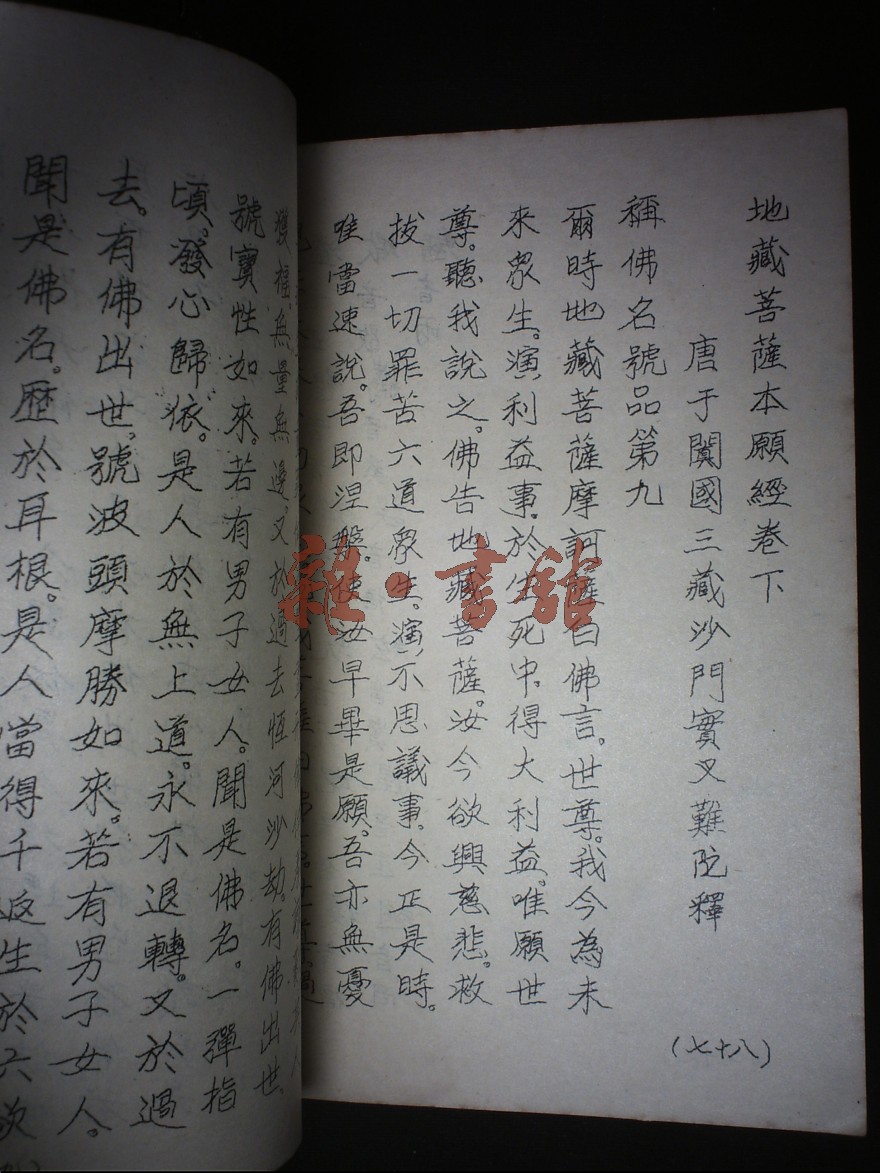 地藏菩薩本願經卷下
唐于闐國三藏沙門實叉難陀釋
稱佛名號品第九
爾時地藏菩薩摩訶薩白佛言。世尊。我今為未
來眾生。演利益事。於生死中。得大利益。唯願世
尊。聽我說之。佛告地藏菩薩。汝今欲興慈悲。救
拔一切罪苦六道眾生。演不思議事。今正是時。
唯當速說。吾即涅槃。使汝早畢是願。吾亦無憂
獲福無量無邊。又於過去恆河沙劫。有佛出世。
號寶性如來。若有男子女人。聞是佛名。一彈指
頃。發心歸依。是人於無上道。永不退轉。又於過
去。有佛出世。號波頭摩勝如來。若有男子女人。
聞是佛名。歷於耳根。是人當得千返生於六欲
(七十八)
雜·書館